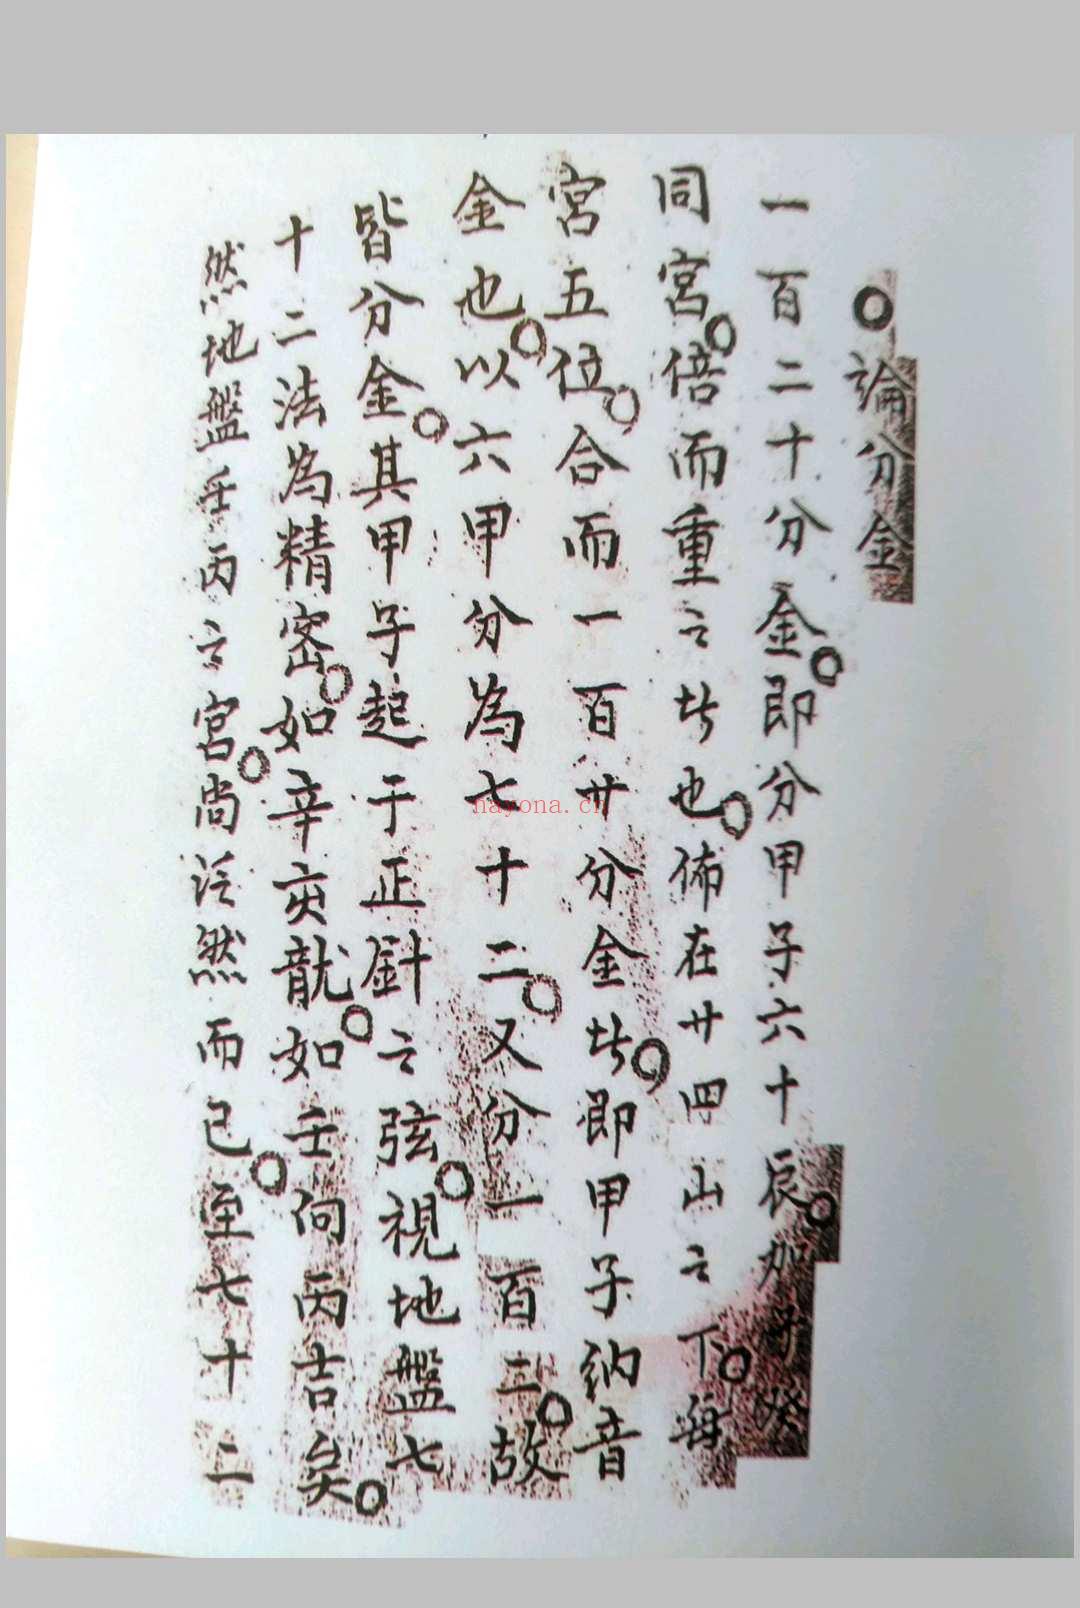 ○論分金
一百二十分金○即分甲子六十辰○如子癸
同宮○倍而重之者也○佈在廿四山之下○每
宮五位○合而一百廿分金者○即甲子納音
金也○以六甲分為七十二○又分一百二○故
皆分金○其甲子起于正針之弦○視地盤七
十二法為精密○如辛亥龍○如壬向丙吉矣○
然地盤壬丙之宮○尚泛然而已○至七十二
nayona.cn